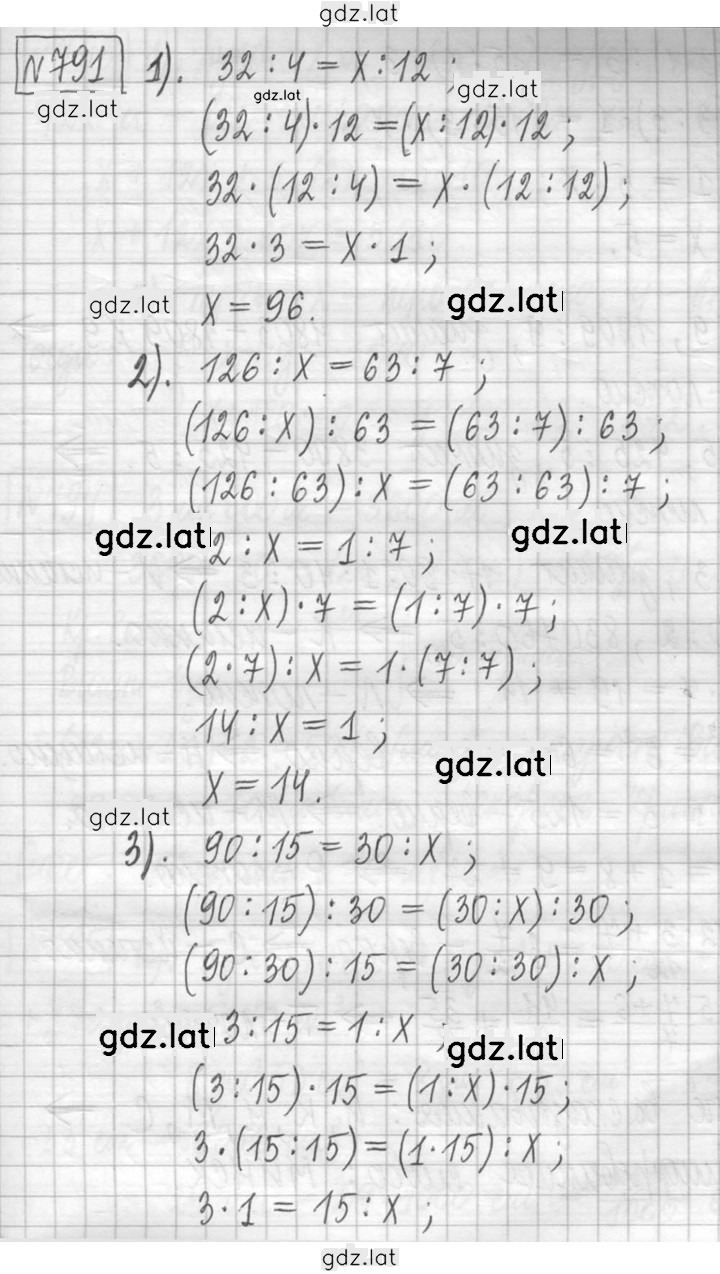 gdz.lat
№791 1). 32 : 4 = x : 12 ;
gdz.lat gdz.lat gdz.lat
(32 : 4) · 12 = (x : 12) · 12 ;
32 · (12 : 4) = x · (12 : 12) ;
32 · 3 = x · 1 ;
gdz.lat x = 96. gdz.lat
2). 126 : x = 63 : 7 ;
(126 : x) : 63 = (63 : 7) : 63 ;
(126 : 63) : x = (63 : 63) : 7 ;
gdz.lat 2 : x = 1 : 7 ; gdz.lat
(2 : x) · 7 = (1 : 7) · 7 ;
(2 · 7) : x = 1 · (7 : 7) ;
14 : x = 1 ;
x = 14. gdz.lat
gdz.lat
3). 90 : 15 = 30 : x ;
(90 : 15) : 30 = (30 : x) : 30 ;
(90 : 30) : 15 = (30 : 30) : x ;
gdz.lat 3 : 15 = 1 : x ; gdz.lat
(3 : 15) · 15 = (1 : x) · 15 ;
3 · (15 : 15) = (1 · 15) : x ;
3 · 1 = 15 : x ;
gdz.lat